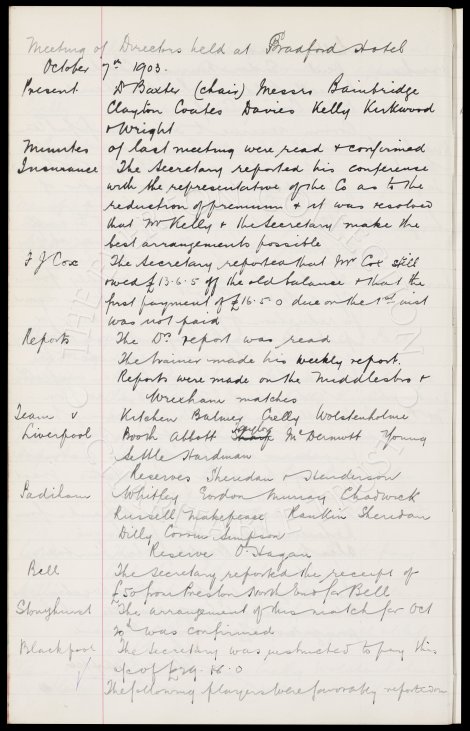 Meeting of Directors held at Bradford Hotel
October 7th 1903.
Present Dr Baxter (chair) Messrs Bainbridge
Clayton Coates Davies Kelly Kirkwood
& Wright
Minutes of last meeting were read & confirmed
Insurance The Secretary reported his conference
with the representative of the Co as to the
reduction of premium & it was resolved
that Mr Kelly & the Secretary make the
best arrangements possible
F J Cox The Secretary reported that Mr Cox still
owed £13.6.5 off the old balance & that the
first payment of £16.5.0 due on the 1st inst
was not paid
Reports The Drs report was read
The trainer made his weekly report.
Reports were made on the Middlesbro &
Wrexham matches
Team v Kitchen Balmer Crelly Wolstenholme
Liverpool Booth Abbott Sharp McDermott Young
Settle Hardman
Reserves Sheridan & Henderson
Padiham Whitley Murray Chadwick
Russell Makepeace Rankin Sheridan
Dilly Corrin Simpson
Reserve O'Hagan
Bell The Secretary reported the receipt of
£50 from Preston North End for Bell
Stonyhurst The arrangement of this match for Oct
was confirmed
Blackpool The Secretary was instructed to pay this
a/c of £29.16.0
The following players were favorably reported on